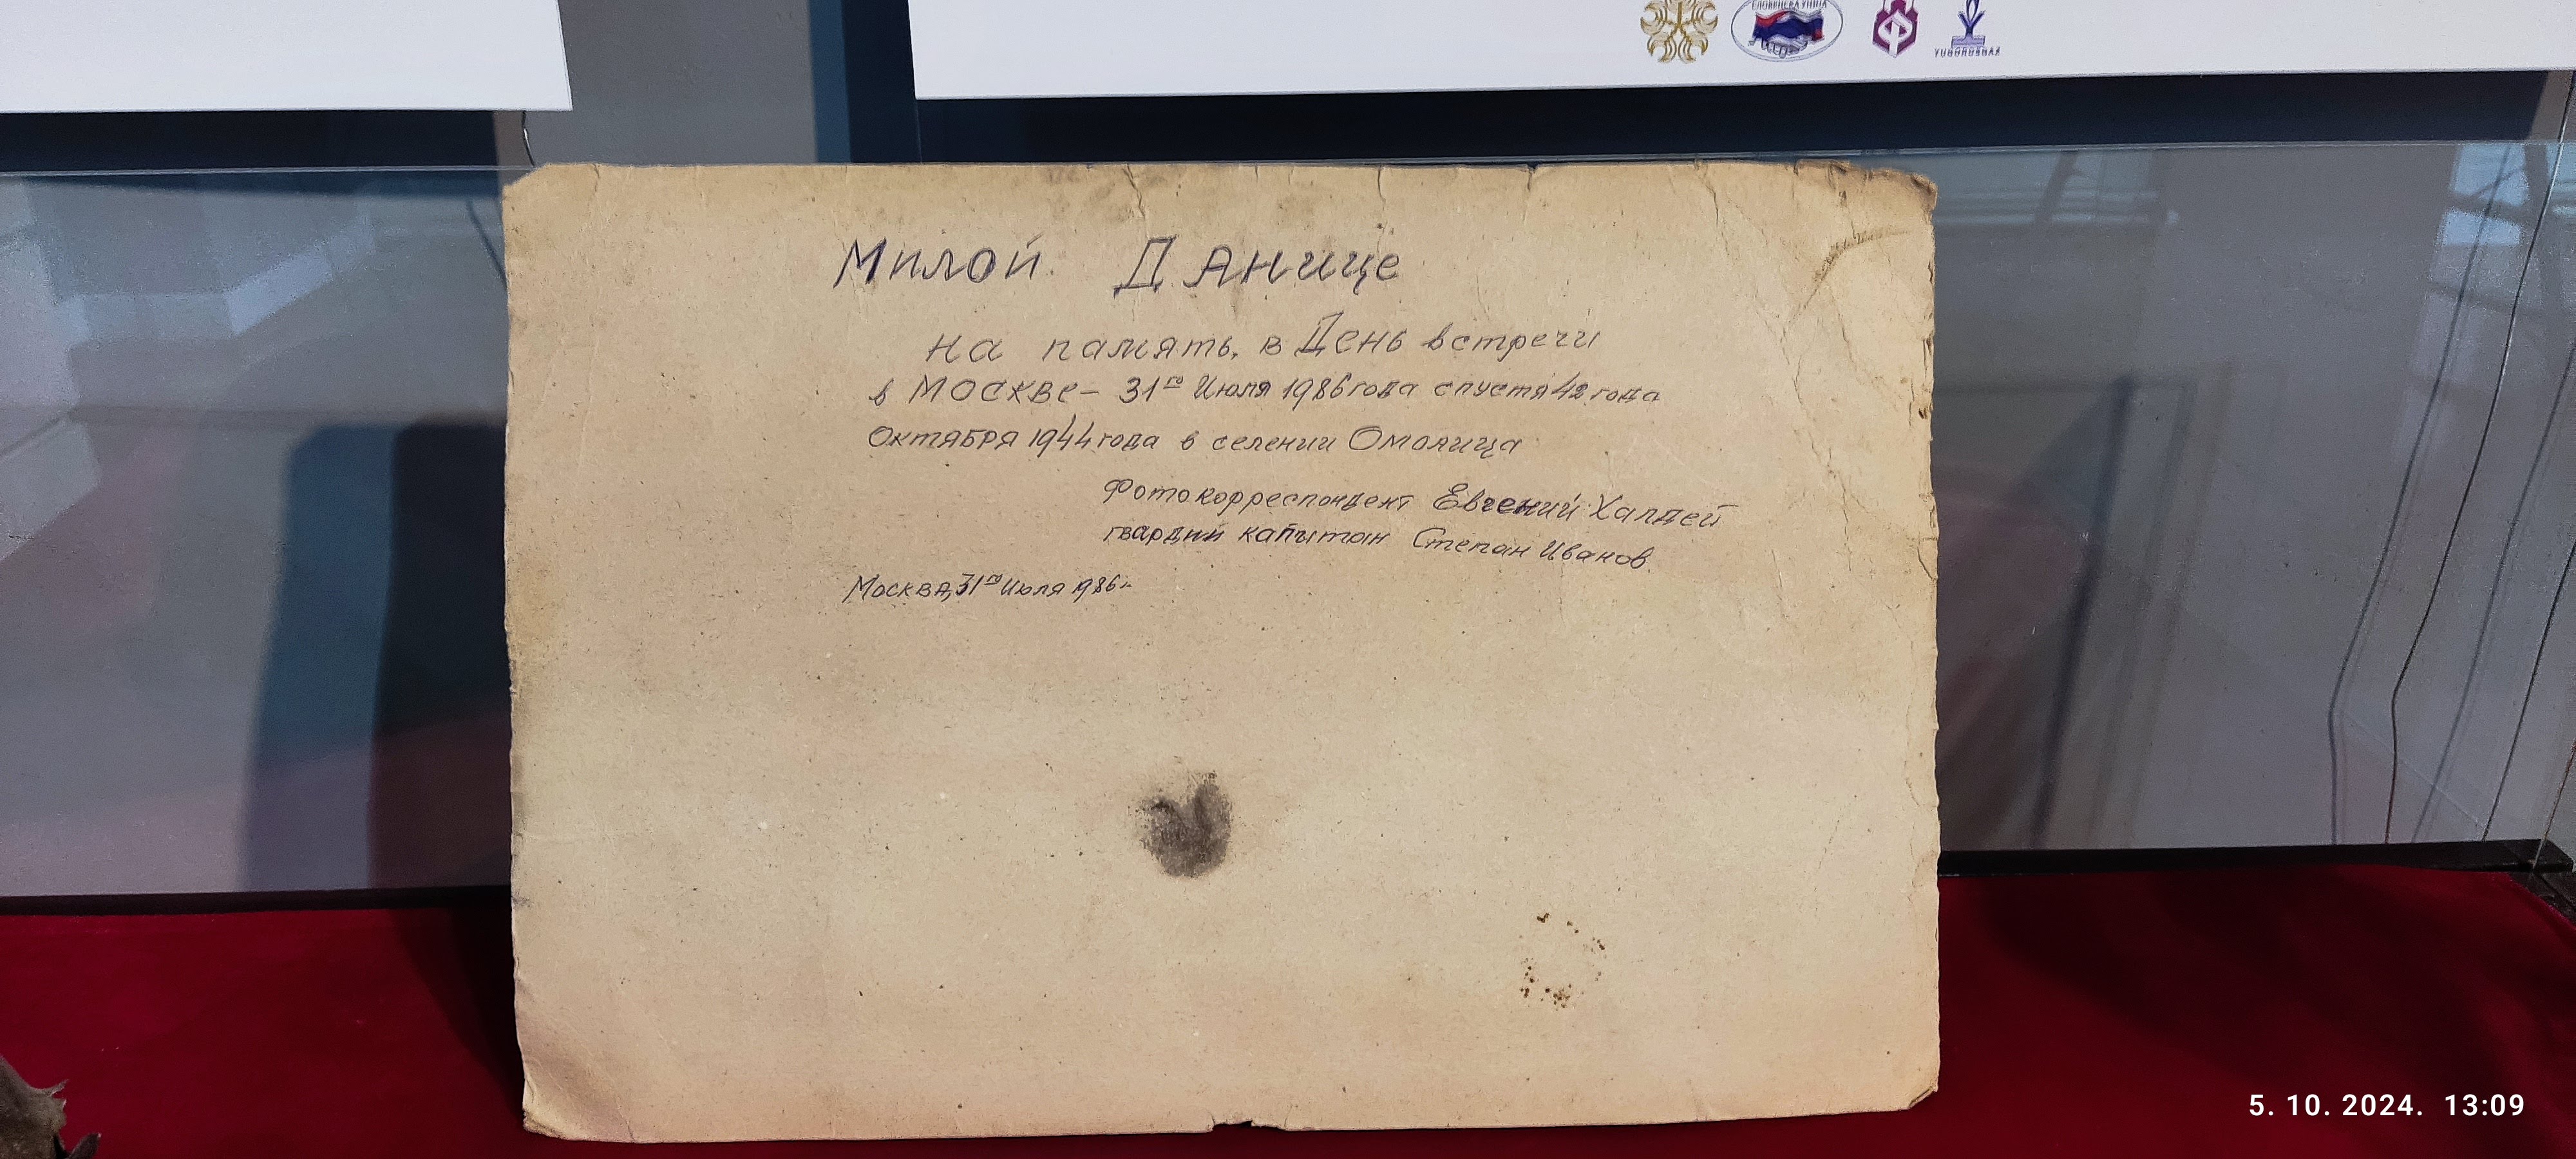 YUGOROSGAZ
Милой Данице
на память, в День встречи
в Москве – 31го Июля 1986 года спустя 42 года
Октября 1944 года в селении Омолица
Фотокорреспондент Евгений Халдей
гвардии капитан Степан Иванов.
Москва, 31го Июля 1986г.
5. 10. 2024. 13:09